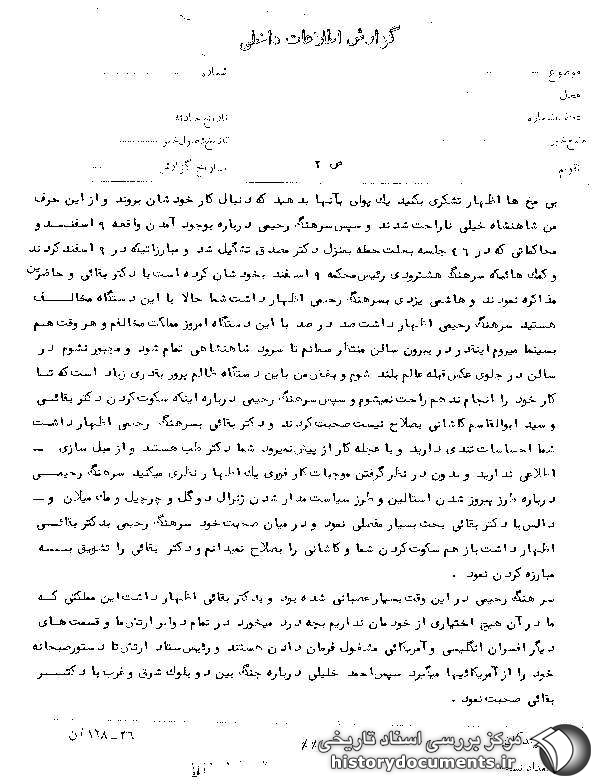 گزارش اطلاعات داخلی
موضوع
شماره
محل
تاریخ حادثه
منبع خبر
تاریخ وصول خبر
تقویم
تاریخ گزارش
ص ۲
بی مخ ها اظهار تشکری بکنید یك پولی بآنها بدهید که دنبال کار خود شان بروند و از این حرف
من شاهنشاه خیلی ناراحت شدند و سپس سرهنگ رحیمی درباره بوجود آمدن واقعه ۹ اسفند و
محاکماتی که در ٤٦ جلسه بعلت حمله بمنزل دکتر مصدق تشکیل شد و مبارزاتیکه در ۹ اسفند کردند
و کمك هائیکه سرهنگ هشترودی رئیس محکمه ۹ اسفند بخود شان کرده است با دکتر بقائی و حاضرین
مذاکره نمودند و هاشمی یزدی بسرهنگ رحیمی اظهار داشت شما حالا با این دستگاه مخالف
هستید سرهنگ رحیمی اظهار داشت صد در صد با این دستگاه امروز مملکت مخالفم و هر وقت هم
بسینما میروم اینقدر در بیرون سالن منتظر میمانم تا سرود شاهنشاهی تمام شود و مجبور نشوم در
سالن در جلوی عکس قبله عالم بلند شوم و بغض من با این دستگاه ظالم پرور بقدری زیاد است که تا
کار خود را انجام ندهم راحت نمیشوم و سپس سرهنگ رحیمی درباره اینکه سکوت کردن دکتر بقائی
و سید ابوالقاسم کاشانی بصلاح نیست صحبت کردند و دکتر بقائی بسرهنگ رحیمی اظهار داشت
شما احساسات تندی دارید و با عجله کار از پیش نمیرود شما دکتر طب هستید و از مبل سازی ـ
اطلاعی ندارید و بدون در نظر گرفتن موجبات کار فوری یك اظهار نظری میکنید سرهنگ رحیمی
درباره طرز پیروز شدن استالین و طرز سیاست مدار شدن ژنرال دوگل و چرچیل و مك میلان و ـ
دالس با دکتر بقائی بحث بسیار مفصلی نمود و در میان صحبت خود سرهنگ رحیمی بدکتر بقائی
اظهار داشت باز هم سکوت کردن شما و کاشانی را بصلاح نمیدانم و دکتر بقائی را تشویق بسه
مبارزه کردن نمود .
سرهنگ رحیمی در این وقت بسیار عصبانی شده بود و بدکتر بقائی اظهار داشت این مملکتی که
ما در آن هیچ اختیاری از خود مان نداریم بچه درد میخورد در تمام دوایر ارتش ما و قسمت های
دیگر افسران انگلیسی و آمریکائی مشغول فرمان دادن هستند و رئیس ستاد ارتش تا دستور صبحانه
خود را از آمریکائیها میگیرد سپس احمد خلیلی درباره جنگ بین دو بلوك شرق و غرب با دکتر
بقائی صحبت نمود .
۳٦ - ۱٦۸ / ن
مرکز بررسی اسناد تاریخی
historydocuments.ir